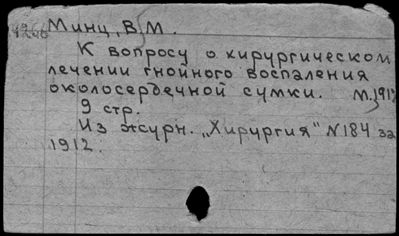 Минц, В. М.
К вопросу о хирургическом
лечении гнойного воспаления
околосердечной сумки. М, 1912
9 стр.
Из журн. „Хирургия" N184 за
1912.